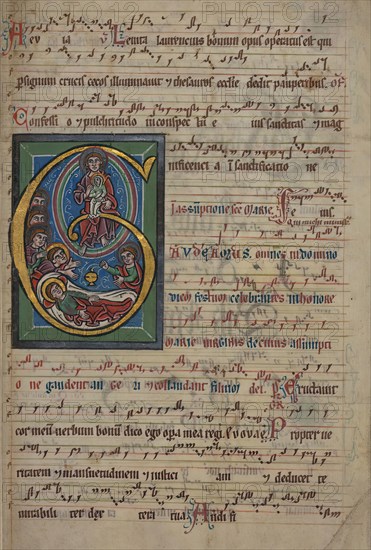 Aev ia Levita laurencius bonum opus operatus est qui
p signum crucis cecos illuminavit & thesauros ecclie dedit pauperibus. Of.
Confessio & pulchritudo in conspectu e ius sanctitas & mag
nificencia I sanctificatione
In assuptione sce Marie.
GAUDEAMUS. omnes in domino
diem festum celebrantes in honore
MARIE VIRGINIS de cuius assumpti
o ne gaudent an ge li & collaudant filium dei. Ps. Eructavit
cor meum verbum bonum dico ego opera mea regi. Evovae. Propter ve
ritatem & mansuetudinem & iustici am & deducet te
mirabili ter dex tera tua. Audi fi